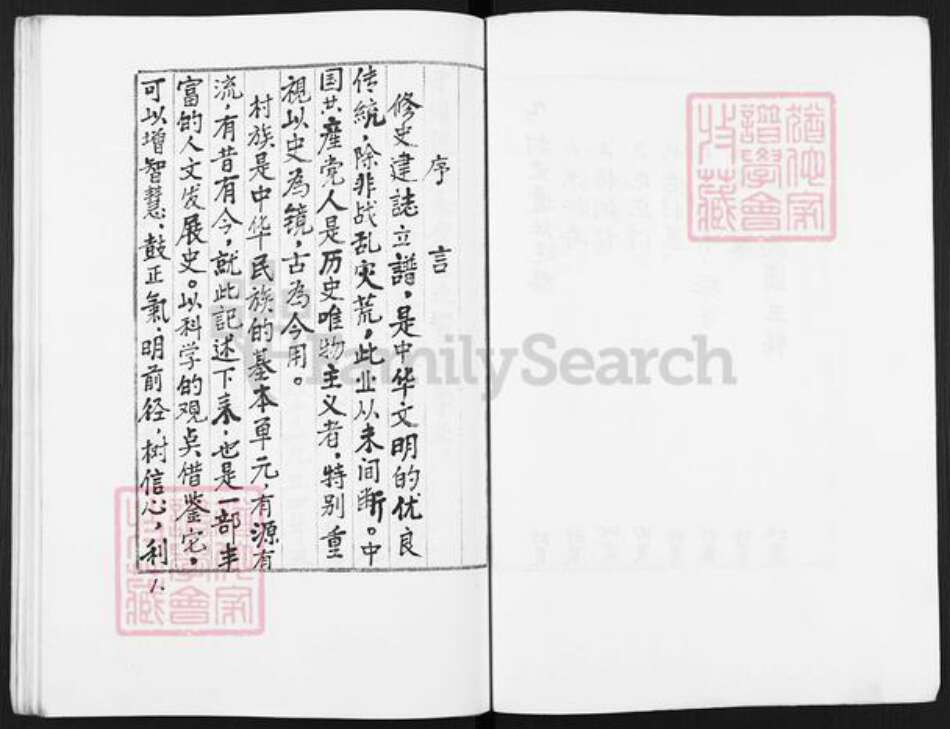 序言
修史建誌立譜，是中华文明的优良
传統，除非战乱灾荒，此业从未间断。中
国共產党人是历史唯物主义者，特别重
視以史為镜，古為今用。
村族是中华民族的基本单元，有源有
流，有昔有今，就此記述下来，也是一部丰
富的人文发展史。以科学的观点借鉴它，
可以增智慧、鼓正氣、明前径，树信心，利
1.
FamilySearch
譜學會
收藏
譜學會
收藏